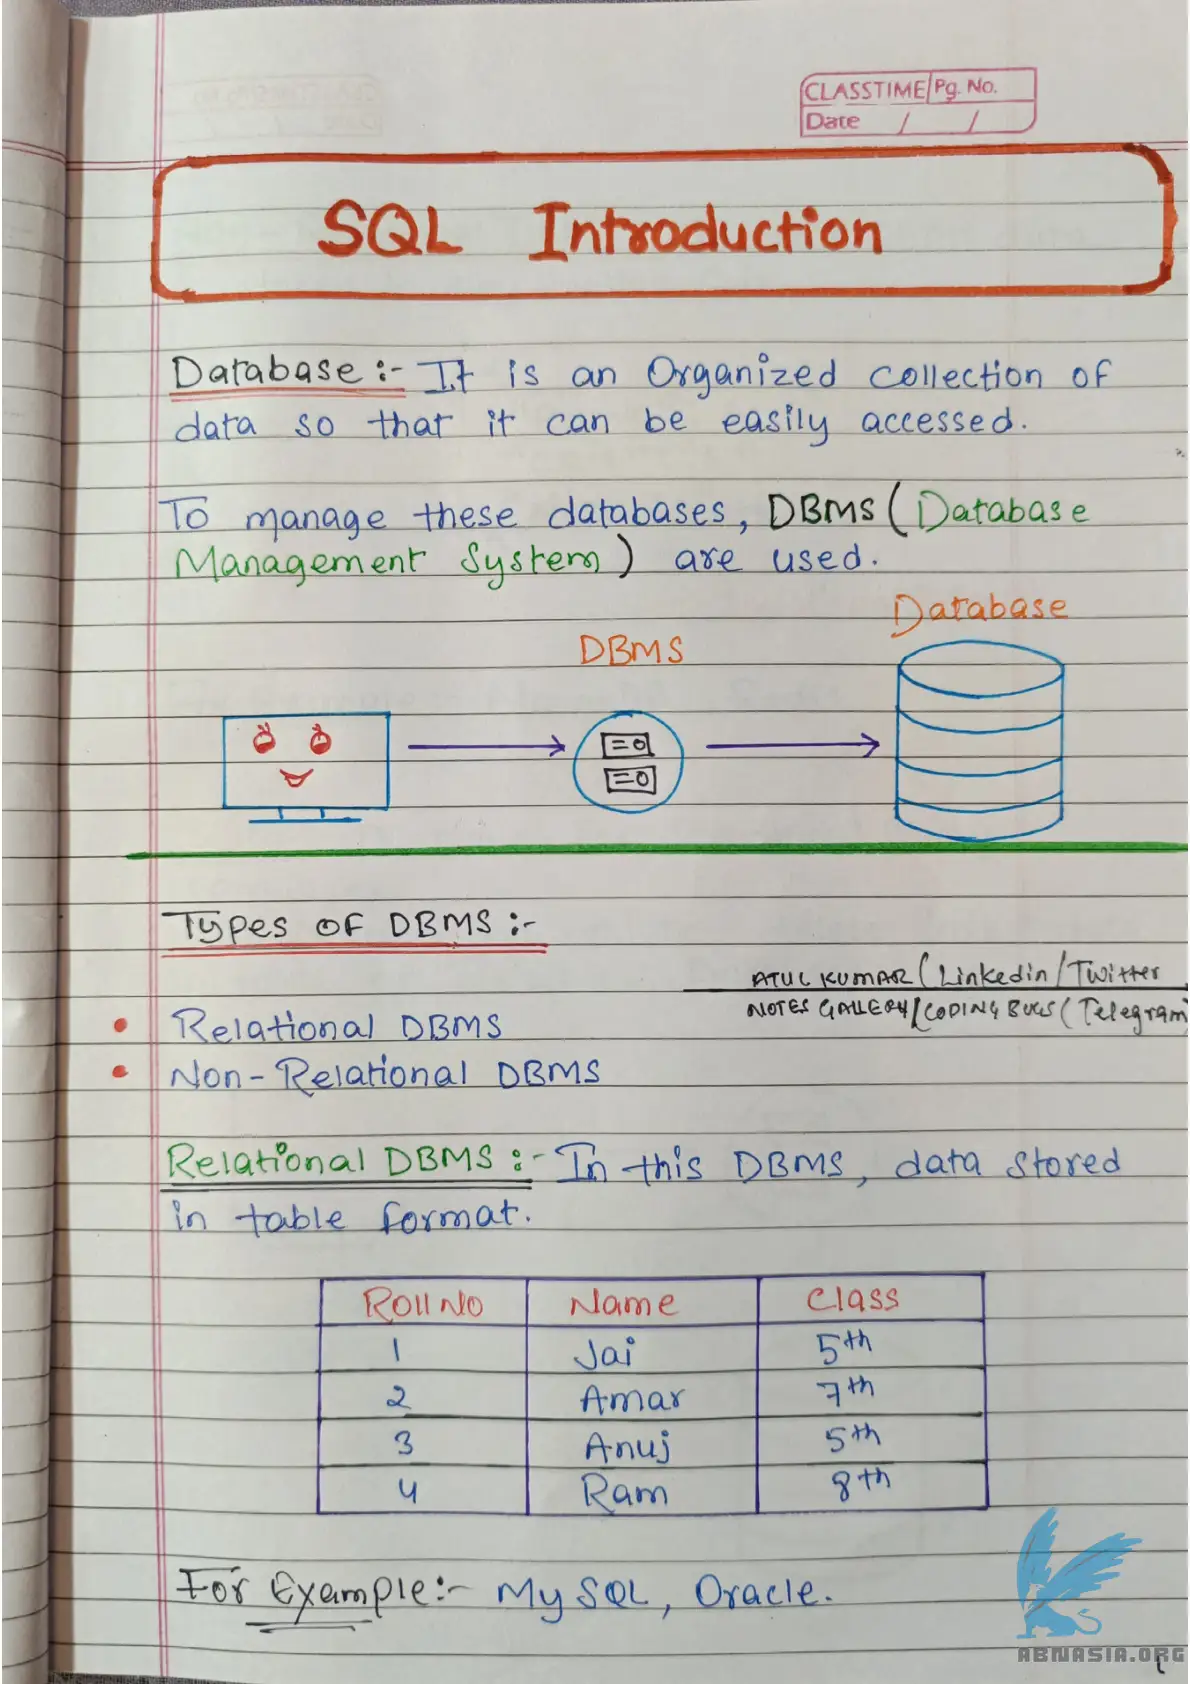 CLASSTIME Pg. No.
Date / /
SQL Introduction
Database :- It is an Organized collection of
data so that it can be easily accessed.
To manage these databases, DBMS (Database
Management System) are used.
Database
DBMS
Types of DBMS :-
ATUL KUMAR (Linkedin/Twitter
NOTES GALLERY/CODING BUGS (Telegram)
• Relational DBMS
• Non-Relational DBMS
Relational DBMS :- In this DBMS, data stored
in table format.
Roll No Name Class
1 Jai 5th
2 Amar 7th
3 Anuj 5th
4 Ram 8th
For Example :- MySQL, Oracle.
ABNASIA.ORG